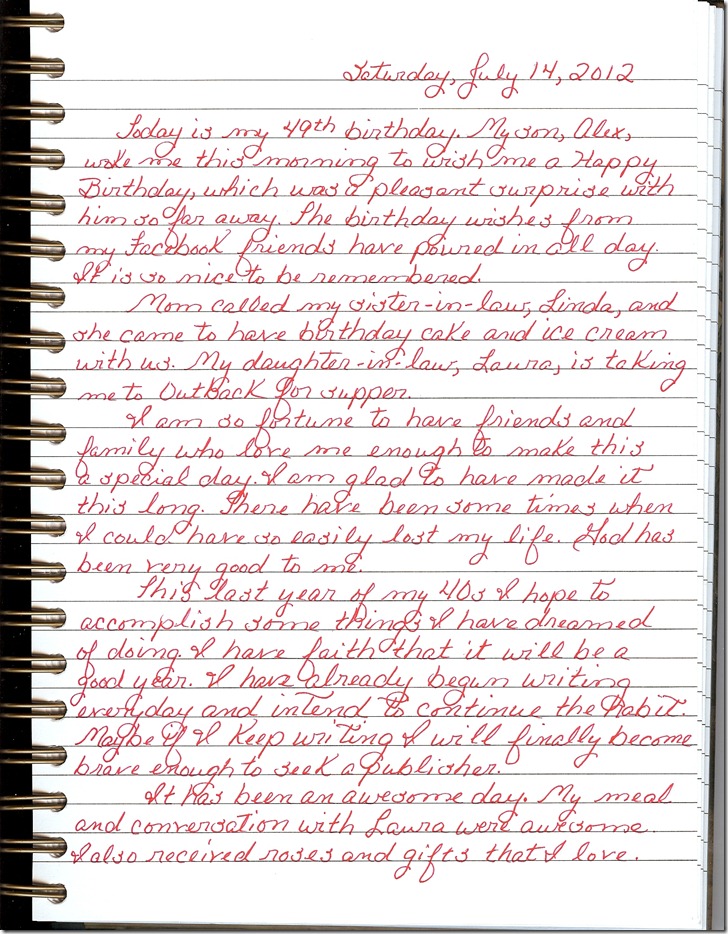 Saturday, July 14, 2012
Today is my 49th birthday. My son, Alex,
woke me this morning to wish me a Happy
Birthday, which was a pleasant surprise with
him so far away. The birthday wishes from
my Facebook friends have poured in all day.
It is so nice to be remembered.
Mom called my sister-in-law, Linda, and
she came to have birthday cake and ice cream
with us. My daughter-in-law, Laura, is taking
me to OutBack for supper.
I am so fortune to have friends and
family who love me enough to make this
a special day. I am glad to have made it
this long. There have been some times when
I could have so easily lost my life. God has
been very good to me.
This last year of my 40s I hope to
accomplish some things I have dreamed
of doing. I have faith that it will be a
good year. I have already begun writing
everyday and intend to continue the habit.
Maybe if I keep writing I will finally become
brave enough to seek a publisher.
It has been an awesome day. My meal
and conversation with Laura were awesome.
I also received roses and gifts that I love.